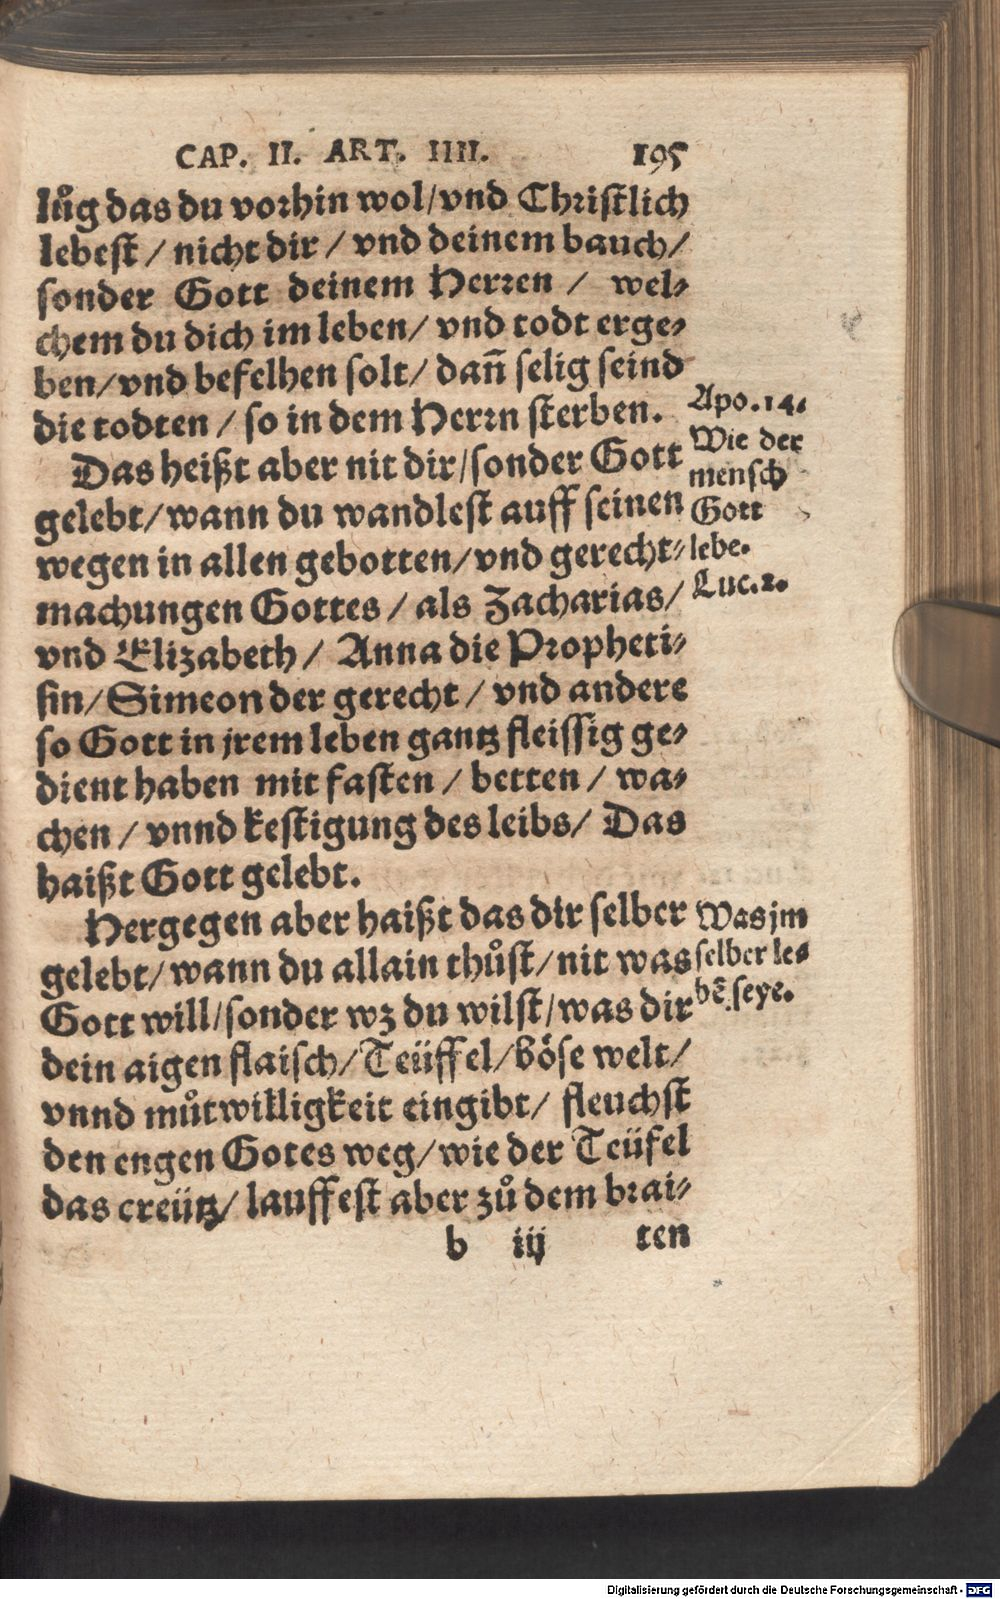 CAP. II. ART. IIII. 195
lůg das du vorhin wol/vnd Christlich
lebest / nicht dir / vnd deinem bauch/
sonder Gott deinem Herren / wel-
chem du dich im leben/ vnd todt erge-
ben/vnd befelhen solt/ dañ selig seind
die todten / so in dem Herrn sterben.
Apo. 14.
Das heißt aber nit dir/sonder Gott
gelebt/wann du wandlest auff seinen
wegen in allen gebotten/vnd gerecht-
machungen Gottes / als Zacharias/
vnd Elizabeth / Anna die Propheti-
sin/Simeon der gerecht / vnd andere
so Gott in jrem leben gantz fleissig ge-
dient haben mit fasten / betten / wa-
chen / vnnd kestigung des leibs/ Das
haißt Gott gelebt.
Wie der
mensch
Gott
lebe.
Luc. 2.
Hergegen aber haißt das dir selber
gelebt/wann du allain thůst/nit was
Gott will/sonder wz du wilst/was dir
dein aigen flaisch/Teüffel/böse welt/
vnnd můtwilligkeit eingibt/ fleuchst
den engen Gotes weg/wie der Teüfel
das creütz/ lauffest aber zů dem brai-
Was jm
selber le-
bẽ seye.
b iij ten
Digitalisierung gefördert durch die Deutsche Forschungsgemeinschaft - DFG